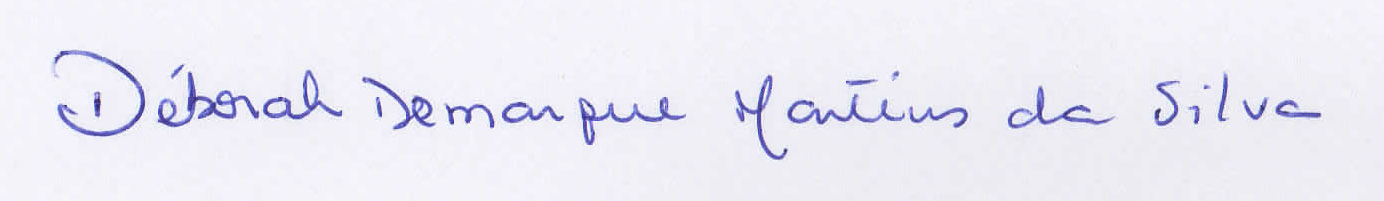 Déborah Demarque Martins da Silva